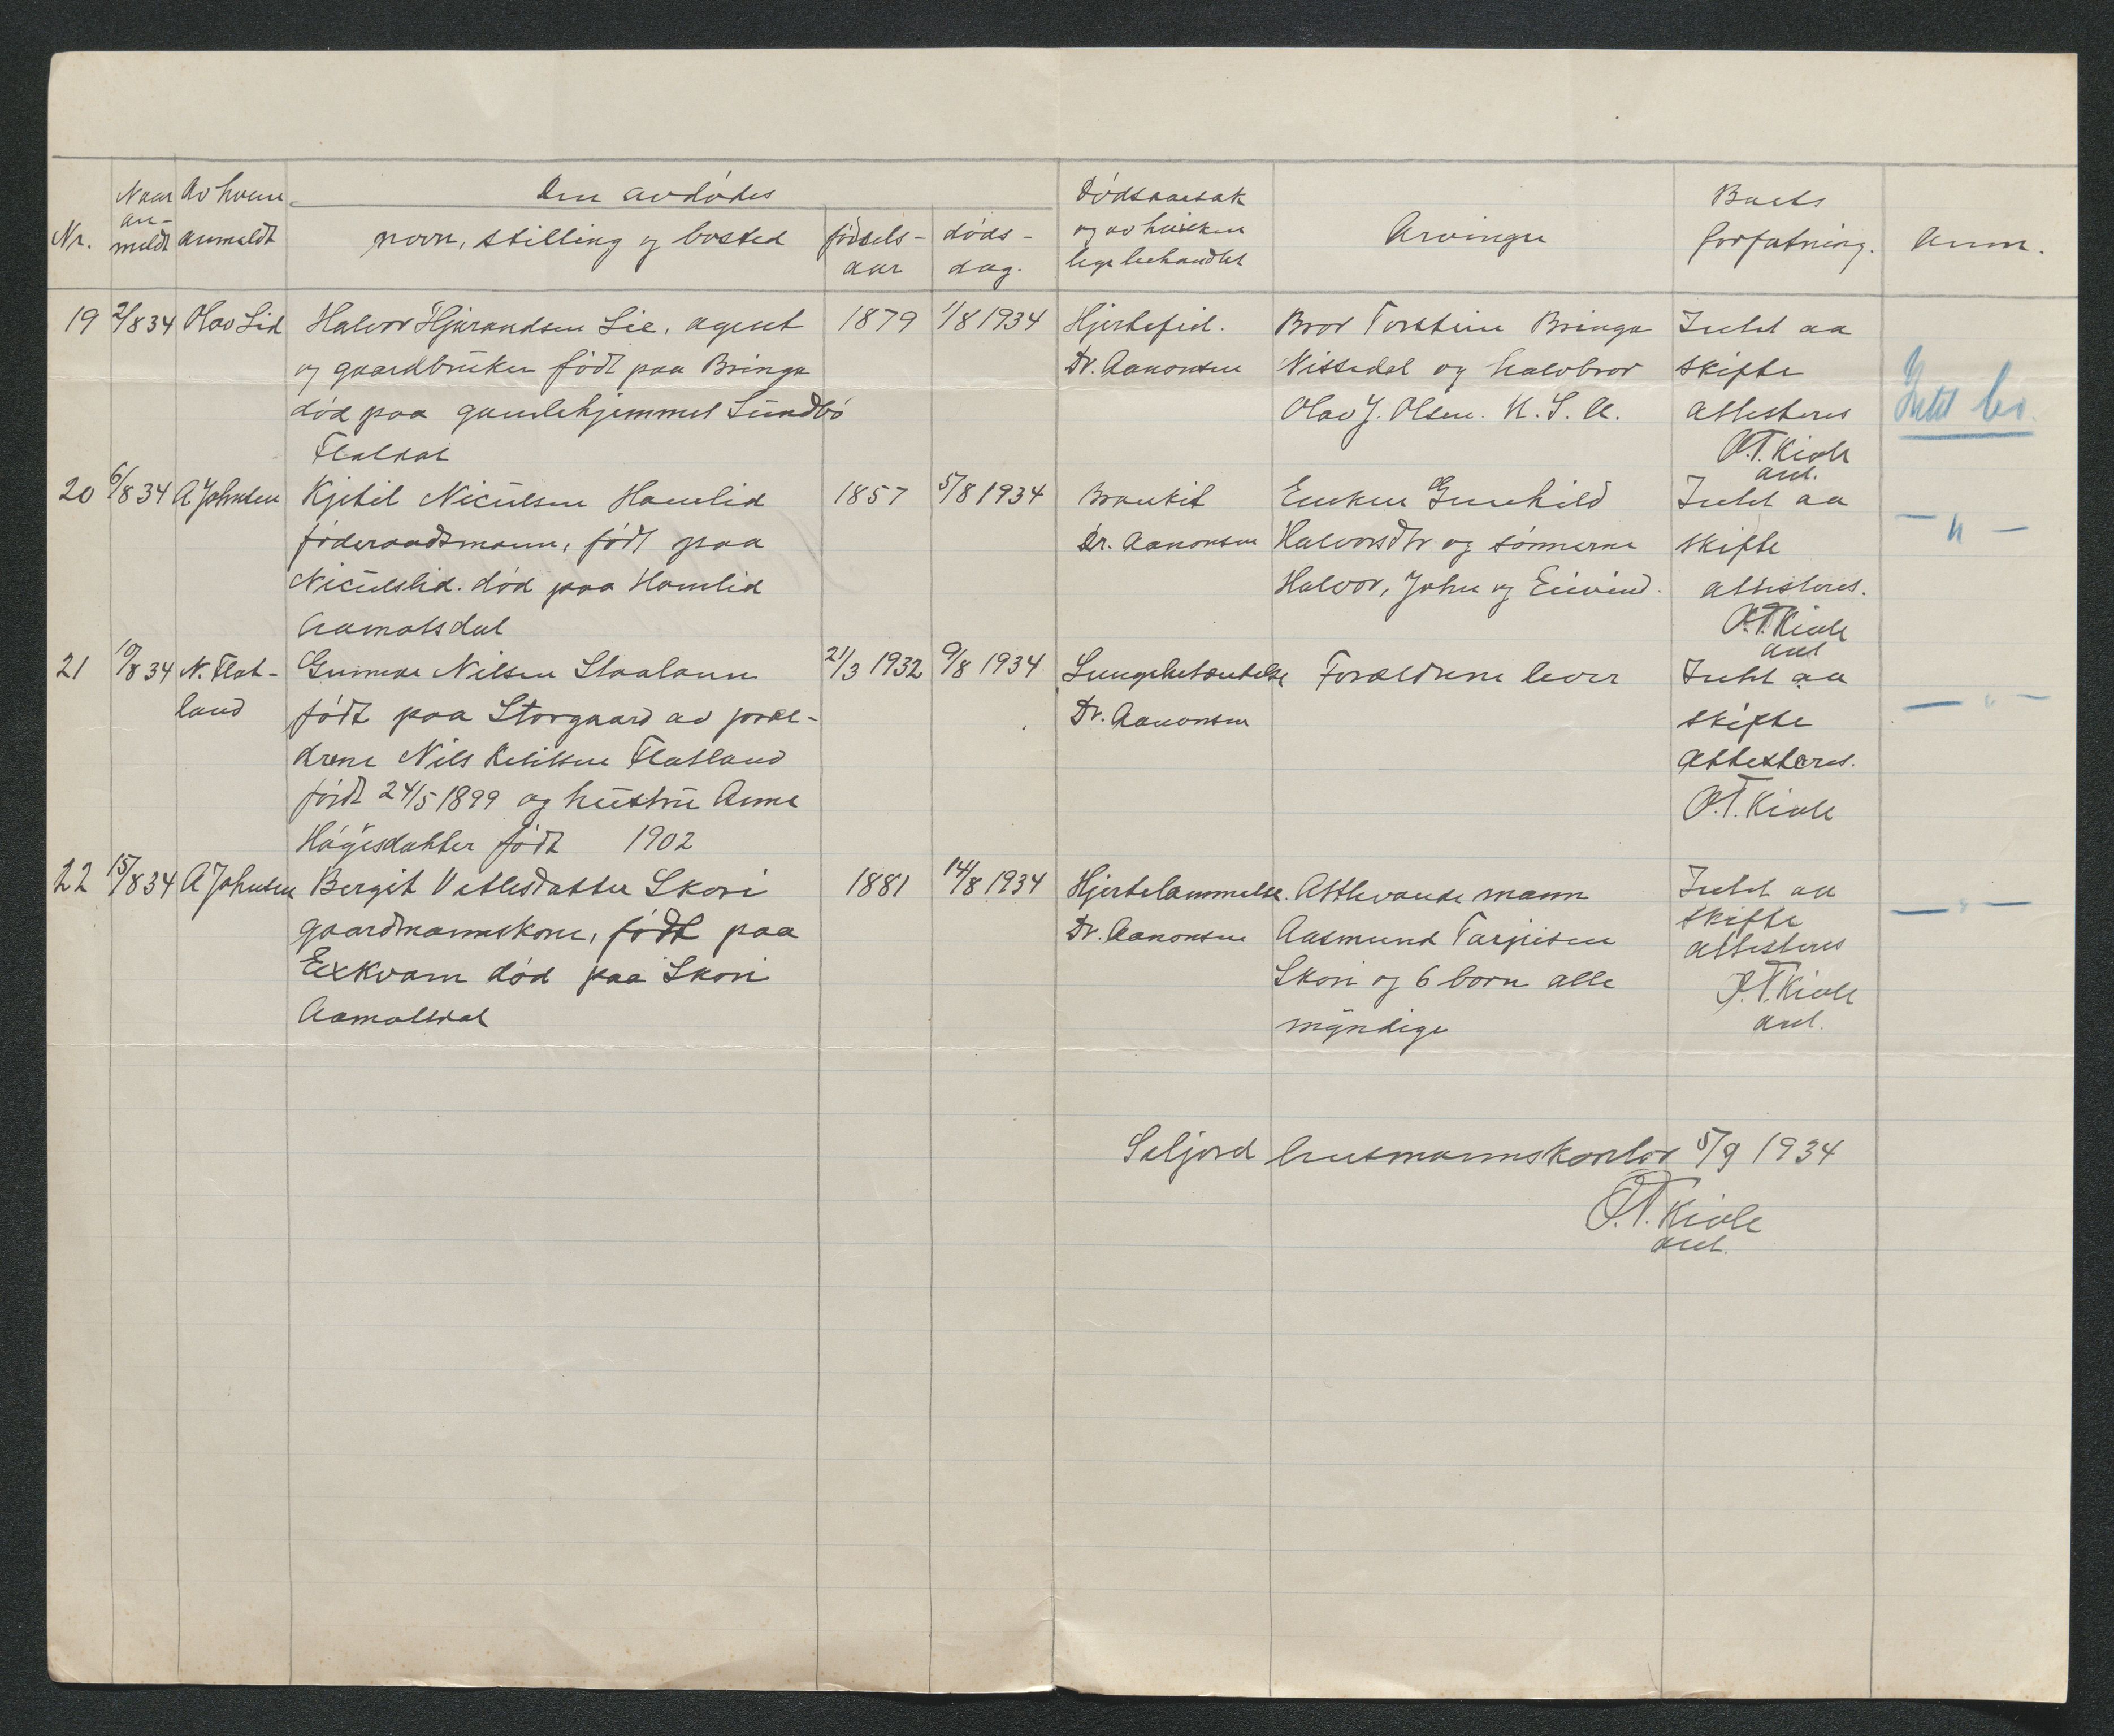 Nr.
Naar an-meldt
Av hvem anmeldt
Den avdødes
navn, stilling og bosted
fødsels-aar
døds-dag.
Dødsaarsak
og av hvilken
lege behandlet
Arvinger
Boets
forfatning.
Anm.
19 2/8 34 Olav Lid Halvor Hjurandsen Lie, agent 1879 1/8 1934 Hjertefeil. Bror Torstein Bringa Intet aa
og gaardbruker født paa Bringa Dr. Aanonsen Nissedal og halvbror skifte
død paa gamlehjemmet Sundbø Olav J. Olsen. U.S.A. attesteres Intet bo.
Flatdal O.T. Kivle
anl.
20 6/8 34 A Johnsen Kjetil Niculsen Homlid 1857 5/8 1934 Bronkit Enken Gunhild Intet aa — " —
føderaadsmann, født paa Dr. Aanonsen Halvorsdtr og sønnerne skifte
Niculslid. død paa Homlid Halvor, John og Eivind. attesteres.
Aamotsdal O.T. Kivle
anl
21 10/8 34 N. Flat- Gunnar Nilsen Staalann 21/3 1932 9/8 1934 Lungebetændelse Forældrene lever Intet aa — " —
land født paa Storgaard av foræl- Dr. Aanonsen skifte
drene Nils Ketilsen Flatland attesteres.
født 24/5 1899 og hustru Anne O.T. Kivle
Høgesdatter født 1902
22 15/8 34 A Johnsen Bergit Vetlesdatter Skori 1881 14/8 1934 Hjertelammelse. Attlevande mann Intet aa — " —
gaardmannskone, født paa Dr. Aanonsen Aasmund Tarjeisen skifte
død paa Skori Skori og 6 born alle attesteres
Aamotsdal myndige O.T. Kivle
anl.
Seljord lensmannskontor 5/9 1934
O.T. Kivle
anl.